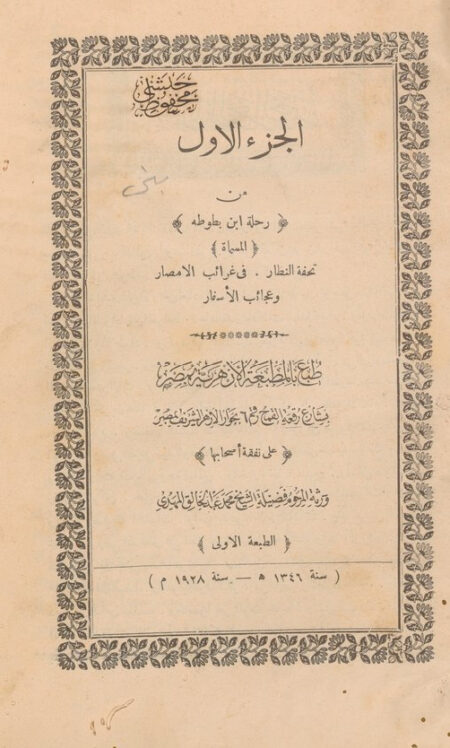 الجزء الاول
من
﴿ رحلة ابن بطوطه ﴾
﴿ المسماة ﴾
تحفة النظار . فى غرائب الامصار
وعجائب الأسفار
طبع بالمطبعة الازهرية بمصر
بشارع رقعة القمح رقم ٦ بجوار الازهر الشريف بمصر
﴿ على نفقة أصحابها ﴾
ورثة المرحوم فضيلة الشيخ محمد عبد الخالق المهدى
﴿ الطبعة الاولى ﴾
( سنة ١٣٤٦ ھ — سنة ١٩٢٨ م )